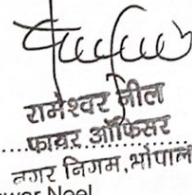 रामेश्वर नील
फायर ऑफिसर
नगर निगम, भोपाल
Neel